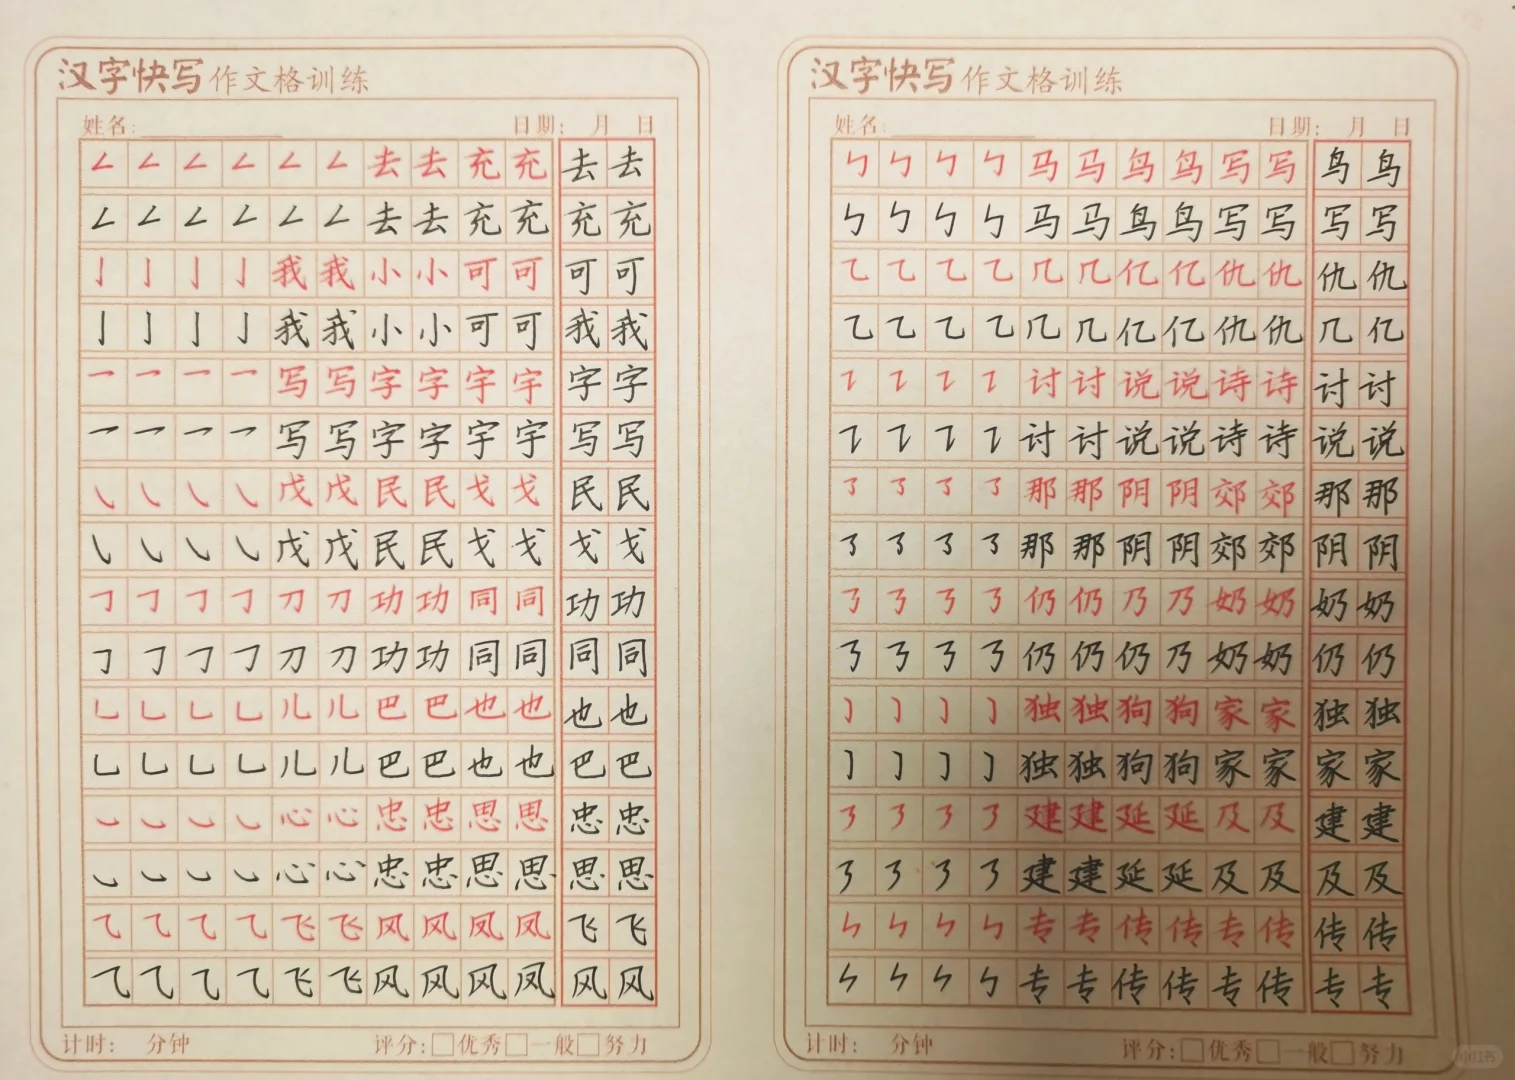 汉字快写 作文格训练
姓名: 日期: 月 日
㇜㇜㇜㇜㇜㇜去去充充去去
㇜㇜㇜㇜㇜㇜去去充充充充
亅亅亅亅我我小小可可可可
亅亅亅亅我我小小可可我我
乛乛乛乛写写字字宇宇字字
乛乛乛乛写写字字宇宇写写
㇂㇂㇂㇂戊戊民民戈戈民民
㇂㇂㇂㇂戊戊民民戈戈戈戈
𠃌𠃌𠃌𠃌刀刀功功同同功功
𠃌𠃌𠃌𠃌刀刀功功同同同同
乚乚乚乚儿儿巴巴也也也也
乚乚乚乚儿儿巴巴也也巴巴
㇃㇃㇃㇃心心忠忠思思忠忠
㇃㇃㇃㇃心心忠忠思思思思
⺄⺄⺄⺄飞飞风风凤凤飞飞
⺄⺄⺄⺄飞飞风风风凤风风
计时: 分钟 评分:□优秀□一般□努力
汉字快写 作文格训练
姓名: 日期: 月 日
㇉㇉㇉㇉马马鸟鸟写写鸟鸟
㇉㇉㇉㇉马马鸟鸟写写写写
乙乙乙乙几几亿亿仇仇仇仇
乙乙乙乙几几亿亿仇仇几亿
㇊㇊㇊㇊讨讨说说诗诗讨讨
㇊㇊㇊㇊讨讨说说诗诗说说
㇌㇌㇌㇌那那阴阴郊郊那那
㇌㇌㇌㇌那那阴阴郊郊阴阴
㇡㇡㇡㇡仍仍乃乃奶奶奶奶
㇡㇡㇡㇡仍仍仍乃奶奶仍仍
㇁㇁㇁㇁独独狗狗家家独独
㇁㇁㇁㇁独独狗狗家家家家
㇋㇋㇋㇋建建延延及及建建
㇋㇋㇋㇋建建延延及及及及
㇞㇞㇞㇞专专传传专传传传
㇞㇞㇞㇞专专传传专传专专
计时: 分钟 评分:□优秀□一般□努力
小红书